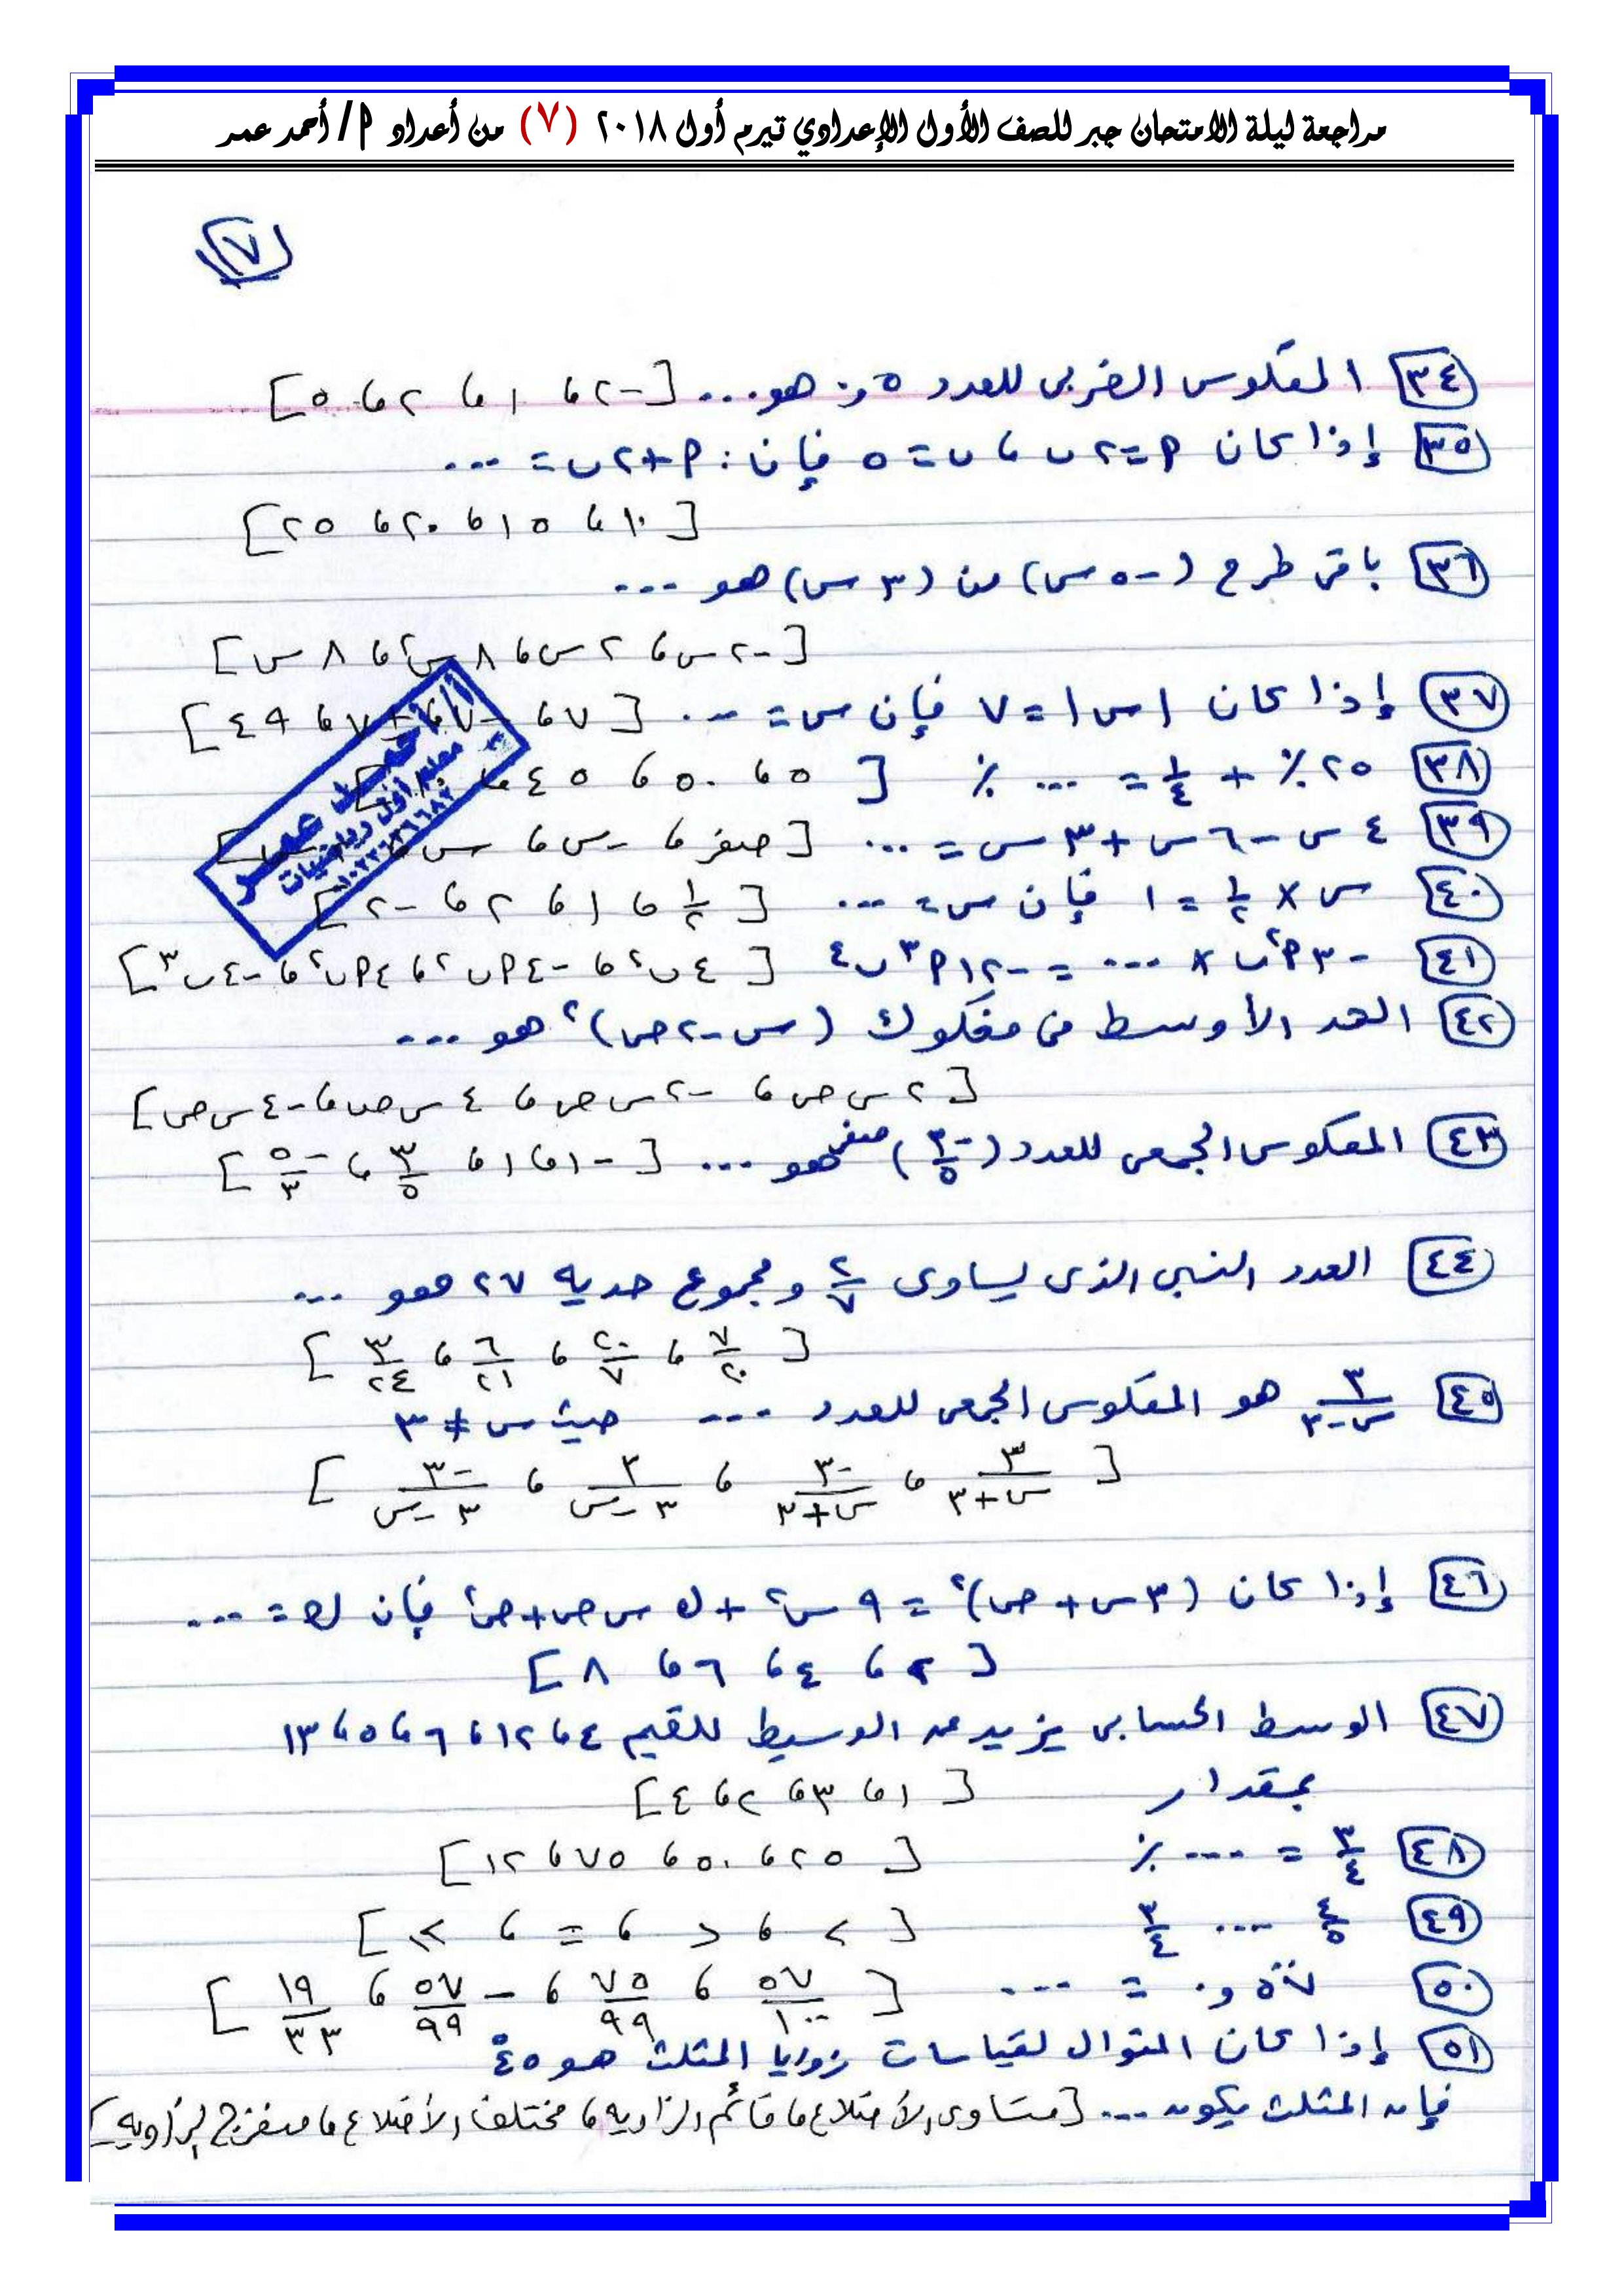 مراجعة ليلة الامتحان جبر للصف الأول الإعدادي تيرم أول ٢٠١٨ (٧) من أعداد أ / أحمد عمر
٧
٣٤ المعكوس الضربى للعدد ٥و٠ هو ... [-٢ ، ١ ، ٢ ، ٥]
٣٥ إذا كان أ=٢ب ، ب=٥ فإن : أ+٢ب= ...
[١٠ ، ١٥ ، ٢٠ ، ٢٥]
٣٦ باقى طرح (-٥س) من (٣س) هو ...
[-٢س ، ٢س ، ٨س² ، ٨س]
٣٧ إذا كان |س|=٧ فإن س= ... [٧ ، -٧ ، ±٧ ، ٤٩]
٣٨ ٢٥٪ + ١/٤ = ... ٪ [٥ ، ٥٠ ، ٤٥ ،
٣٩ ٤س-٦س+٣س= ... [صفر ، -س ، س ،
٤٠ س × ١/٢ = ١ فإن س= ... [١/٢ ، ١ ، ٢ ، -٢]
٤١ -٣أ²ب × ... = -١٢أ³ب⁴ [٤ب² ، -٤أب² ، ٤أب³ ، -٤ب³]
٤٢ الحد الأوسط فى مفكوك (س-٢ص)² هو ...
[٢س ص ، -٢س ص ، ٤س ص ، -٤س ص]
٤٣ المعكوس الجمعى للعدد (-٣/٥)صفر هو ... [-١ ، ١ ، ٣/٥ ، -٥/٣]
٤٤ العدد النسبى الذى يساوى ٢/٧ ومجموع حديه ٢٧ هو ...
[٧/٢٠ ، ٢٠/٧ ، ٦/٢١ ، ٣/٢٤]
٤٥ ٣/(س-٣) هو المعكوس الجمعى للعدد ... حيث س ≠ ٣
[٣/(س+٣) ، -٣/(س+٣) ، ٣/(٣-س) ، -٣/(٣-س)]
٤٦ إذا كان (٣س+ص)² = ٩س² + ك س ص+ص² فإن ك= ...
[٢ ، ٤ ، ٦ ، ٨]
٤٧ الوسط الحسابى يزيد عن الوسيط للقيم ٤ ، ١٢ ، ٦ ، ٥ ، ١٣
بمقدار [١ ، ٣ ، ٢ ، ٤]
٤٨ ٣/٤ = ... ٪ [٢٥ ، ٥٠ ، ٧٥ ، ١٢]
٤٩ ٤/٥ ... ٣/٤ [< ، > ، = ، ≥]
٥٠ ٥̇٧̇و٠ = ... [٥٧/١٠٠ ، ٧٥/٩٩ ، -٥٧/٩٩ ، ١٩/٣٣]
٥١ إذا كان المنوال لقياسات زوايا المثلث هو ٤٥°
فإن المثلث يكون ... [متساوى الأضلاع ، قائم الزاوية ، مختلف الأضلاع ، منفرج الزاويه]
أ / أحمد عمر
معلم أول رياضيات